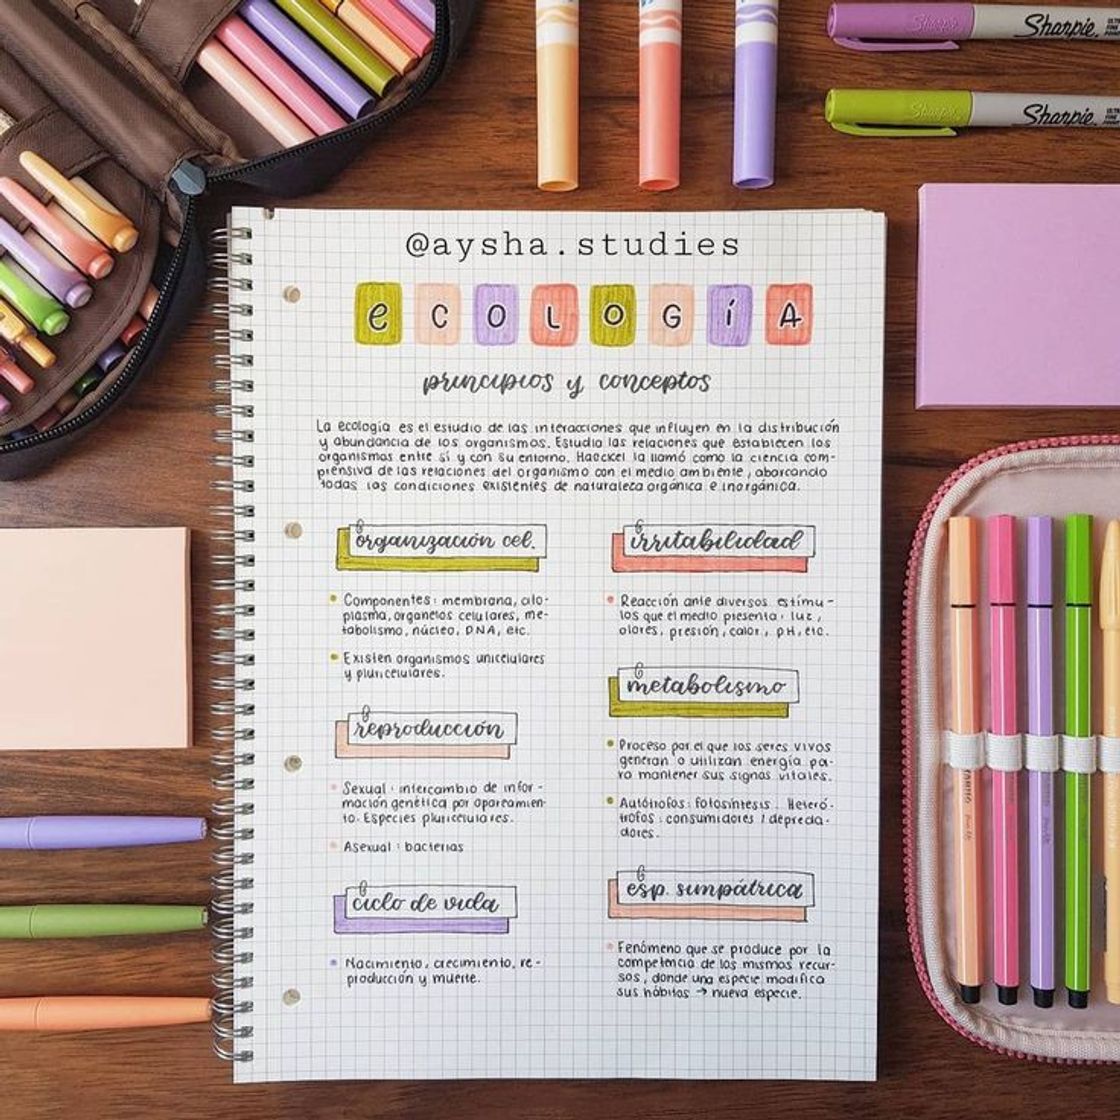 Sharpie
Sharpie
@aysha.studies
ECOLOGÍA
principios y conceptos
La ecología es el estudio de las interacciones que influyen en la distribución
y abundancia de los organismos. Estudia las relaciones que establecen los
organismos entre sí y con su entorno. Haeckel la llamó como la ciencia com-
prensiva de las relaciones del organismo con el medio ambiente, abarcando
todas las condiciones existentes de naturaleza orgánica e inorgánica.
organización cel.
Componentes: membrana, cito-
plasma, organelos celulares, me-
tabolismo, núcleo, DNA, etc.
Existen organismos unicelulares
y pluricelulares.
reproducción
Sexual: intercambio de infor-
mación genética por apareamien-
to. Especies pluricelulares.
Asexual: bacterias
ciclo de vida
Nacimiento, crecimiento, re-
producción y muerte.
irritabilidad
Reacción ante diversos estímu-
los que el medio presenta: luz,
olores, presión, calor, pH, etc.
metabolismo
Proceso por el que los seres vivos
generan o utilizan energía pa-
ra mantener sus signos vitales.
Autótrofos: fotosíntesis. Heteró-
trofos: consumidores / depreda-
dores.
esp. simpátrica
Fenómeno que se produce por la
competencia de los mismos recur-
sos, donde una especie modifica
sus hábitos → nueva especie.